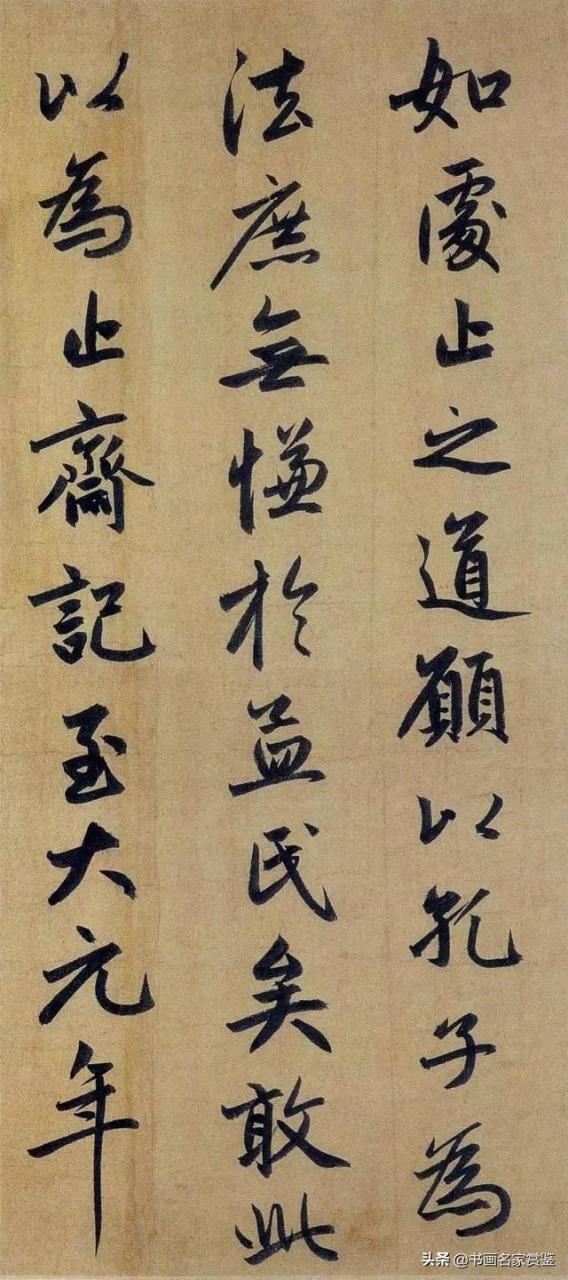 如處止之道願以孔子為
法庶無慊於益民矣敢此
以為止齋記至大元年
头条 @书画名家赏鉴